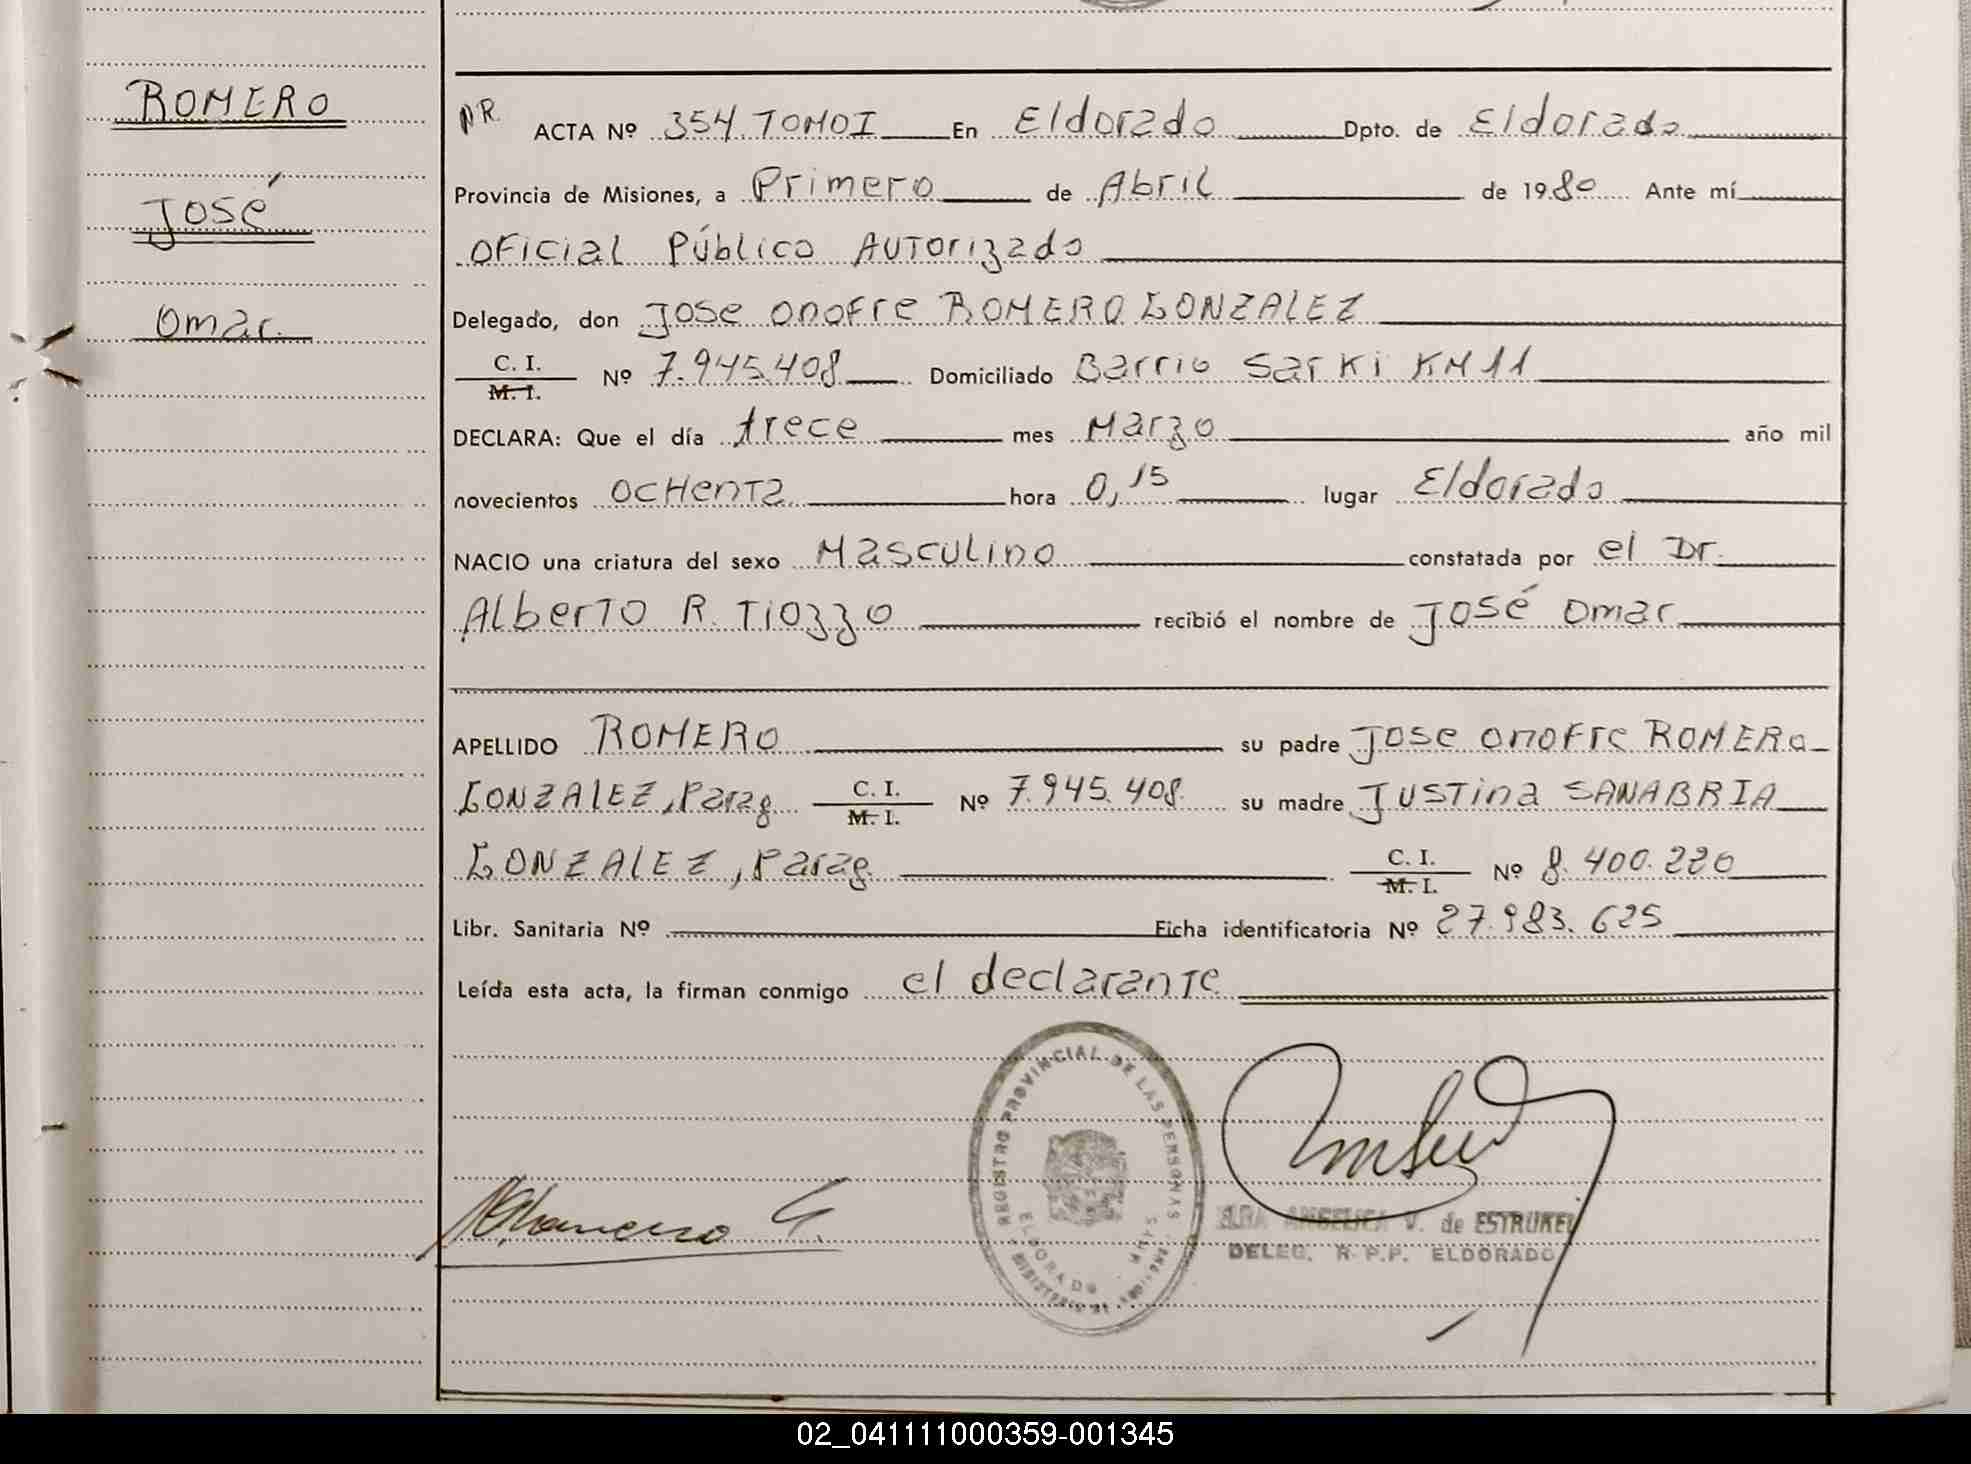 ROMERO
José
Omar
NR. ACTA Nº 354 TOMO I En Eldorado Dpto. de Eldorado
Provincia de Misiones, a Primero de Abril de 1980 Ante mí
Oficial Público Autorizado
Delegado, don Jose Onofre ROMERO GONZALEZ
C. I. M. I. Nº 7.945.408 Domiciliado Barrio Sarki KM 11
DECLARA: Que el día trece mes Marzo año mil
novecientos OCHenTa hora 0,15 lugar Eldorado
NACIO una criatura del sexo Masculino constatada por el Dr.
Alberto R. Tiozzo recibió el nombre de José Omar
APELLIDO ROMERO su padre Jose Onofre ROMERO
GONZALEZ, Parag C. I. M. I. Nº 7.945.408 su madre Justina SANABRIA
GONZALEZ, Parag. C. I. M. I. Nº 8.400.220
Libr. Sanitaria Nº Ficha identificatoria Nº 27.983.625
Leída esta acta, la firman conmigo el declarante
REGISTRO PROVINCIAL DE LAS PERSONAS
ELDORADO
ANGELICA V. de ESTRUKEL
DELEG. R.P.P. ELDORADO
02_041111000359-001345